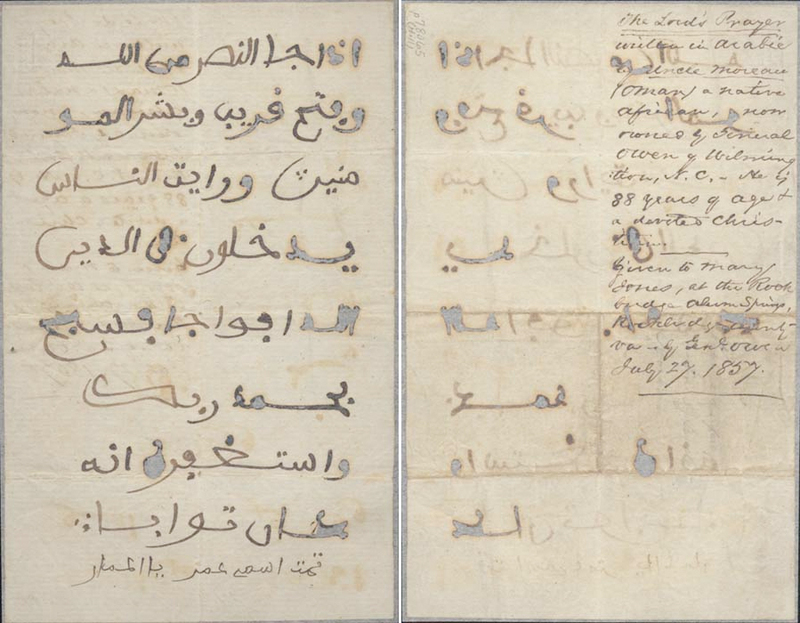 اذا جا النصر من الله
وفتح قريب وبشر المو
منين ورايت الناس
يدخلون فى الدين
الله افواجا فسبح
بحمد ربك
واستغفره انه
كان توابا
تمت اسمي عمر
The Lord's Prayer
written in Arabic
by Uncle Moreau
(Omar) a native
African, now
owned by General
Owen of Wilming
ton, N.C. - He is
88 years of age &
a devoted Chris-
tian.
Given to Mary
Jones, at the Rock
bridge Alum Springs,
Rockbridge County
Va - by Gen Owen
July 27. 1857.